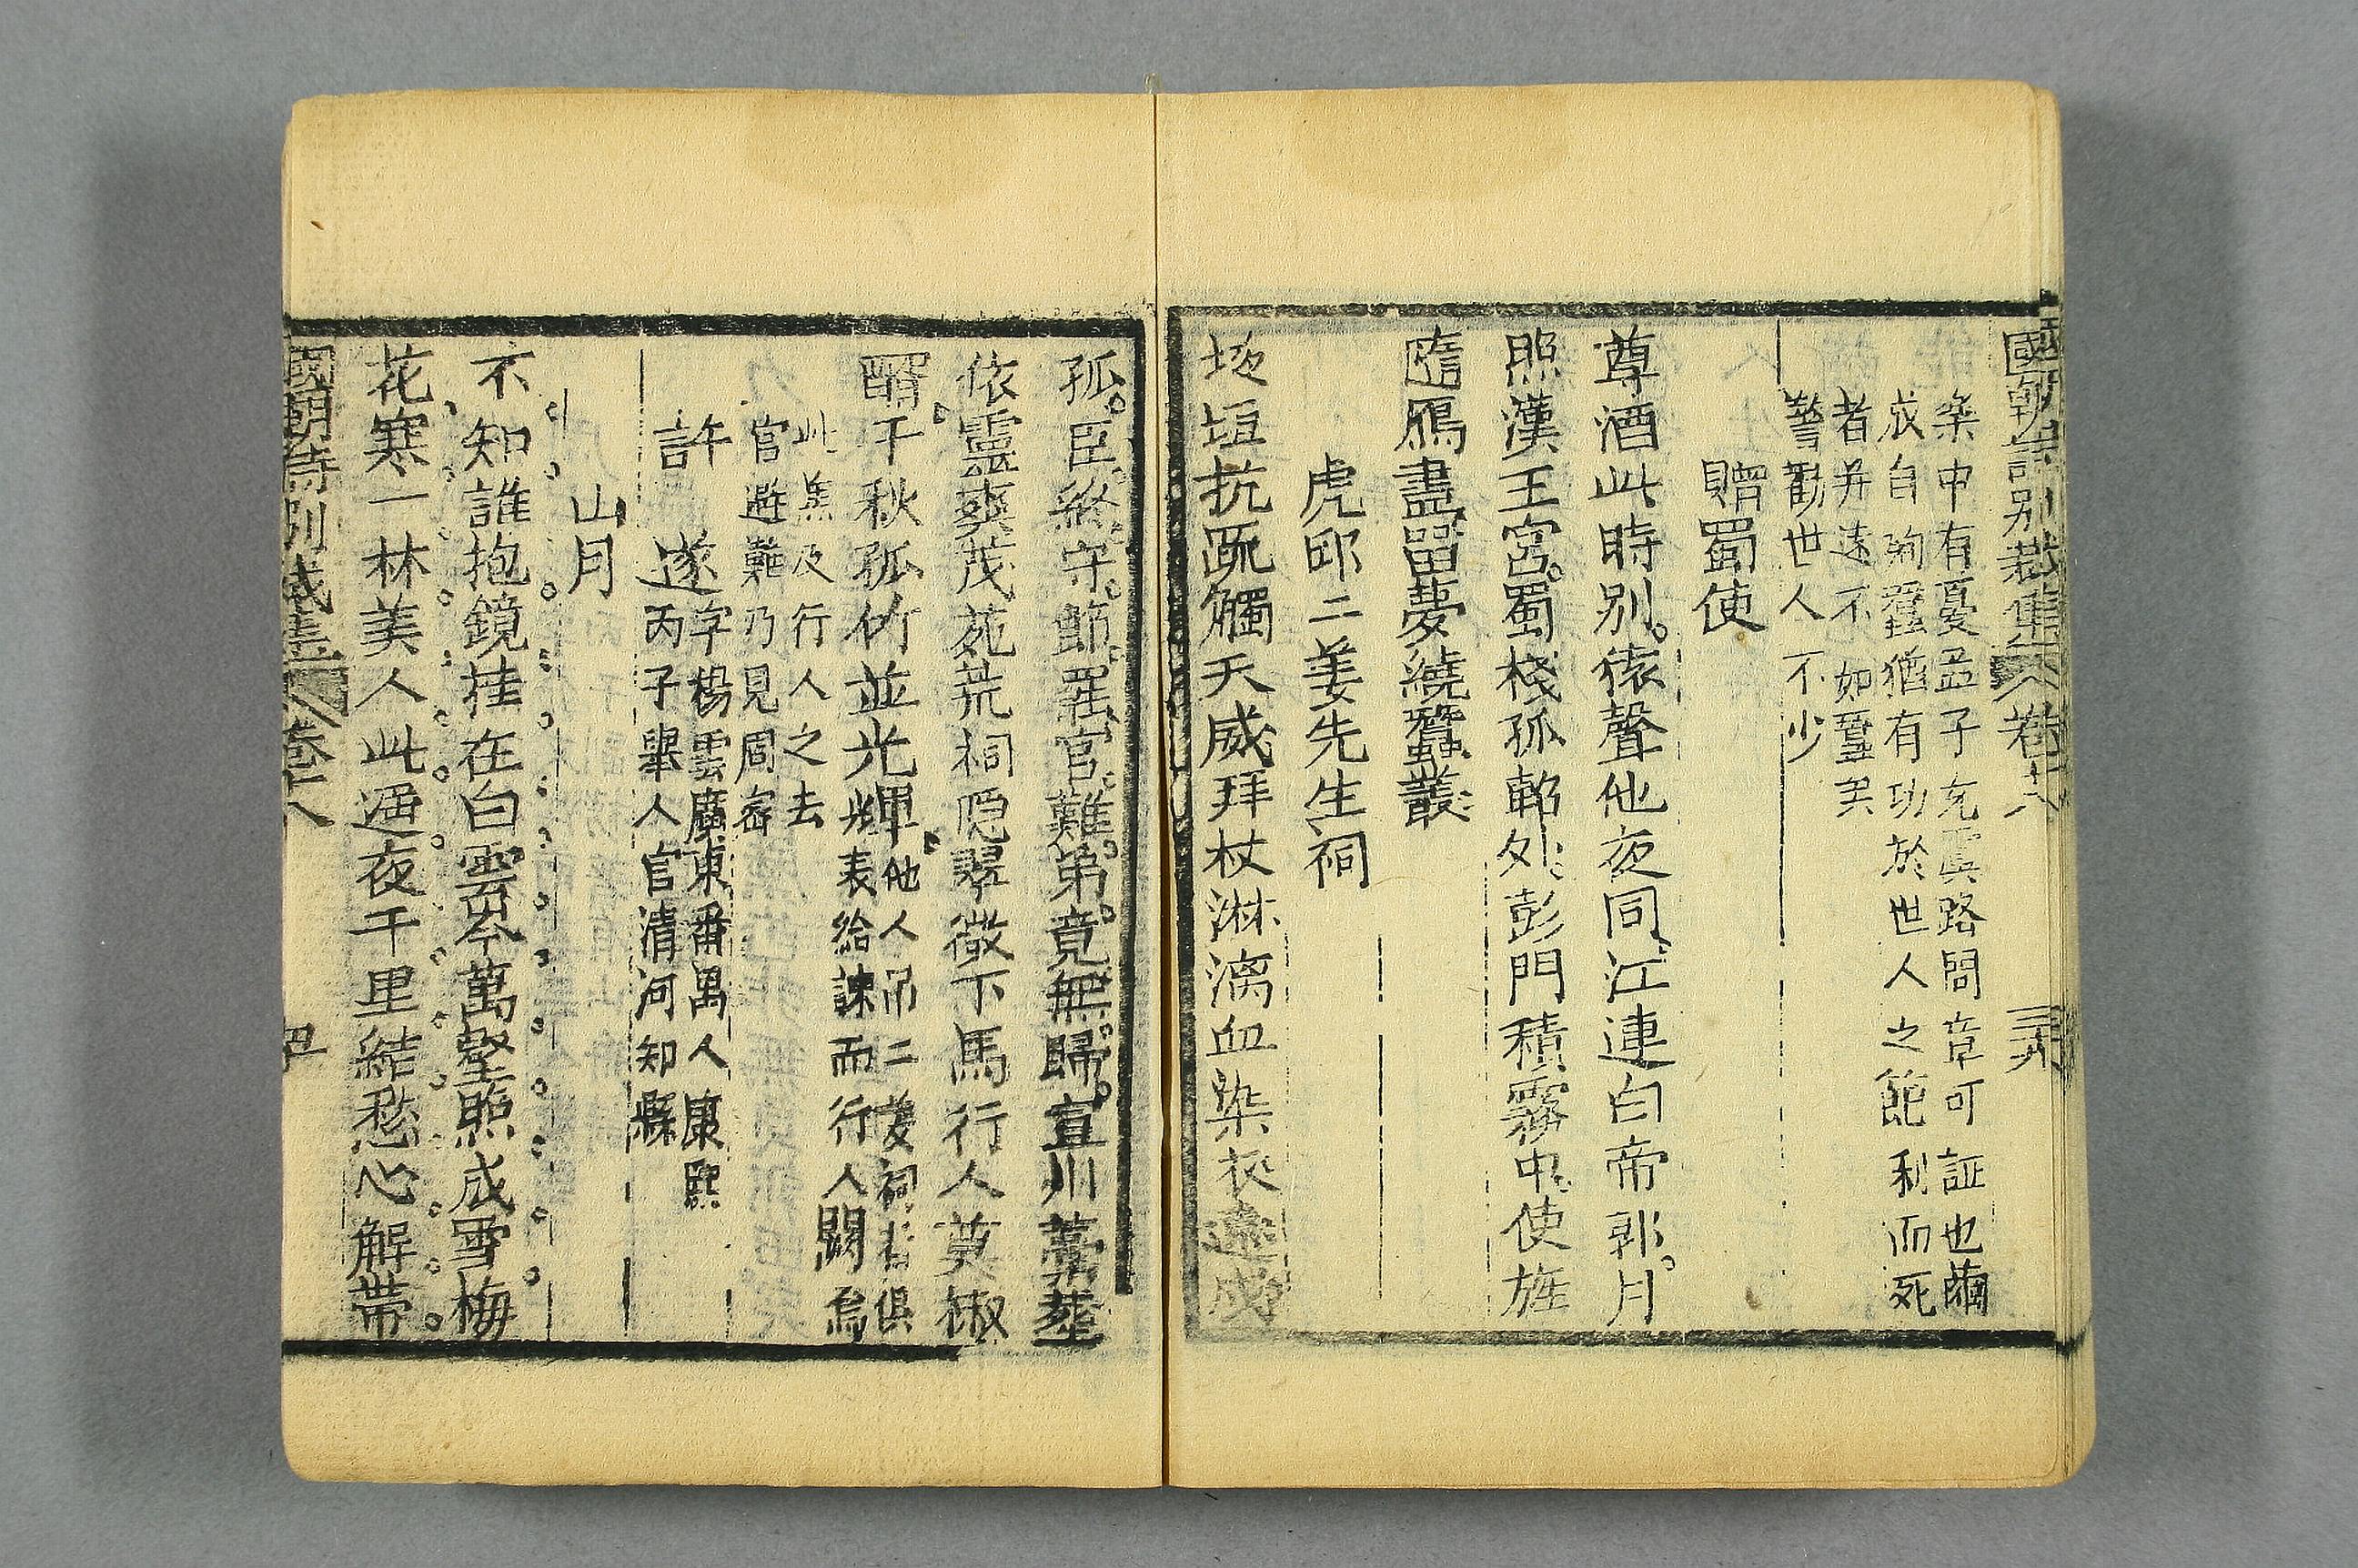 國朝詩別裁集 卷十八 三十九
桑中有憂孟子充虞路問章可証也繭
成自殉蠶猶有功於世人之節利而死
者并遠不如蠶矣
警勸世人不少
贈蜀使
尊酒此時別猿聲他夜同江連白帝郭月
照漢王宮蜀棧孤郵外彭門積霧中使旌
隨鴈盡留夢繞蠶叢
虎邱二姜先生祠
掖垣抗疏觸天威拜杖淋漓血染衣遠戍
孤臣終守節罷官難弟竟無歸宣川藁葬
依靈爽茂苑荒祠隱翠微下馬行人莫椒
醑千秋孤竹並光輝他人吊二姜祠者俱
表給諫而行人闕焉
此兼及行人之去
官避難乃見周密
許遂字楊雲廣東番禺人康熙
丙子舉人官清河知縣
山月
不知誰抱鏡挂在白雲岑萬壑照成雪梅
花寒一林美人此遥夜千里結愁心解帶
國朝詩別裁集 卷十八 四十